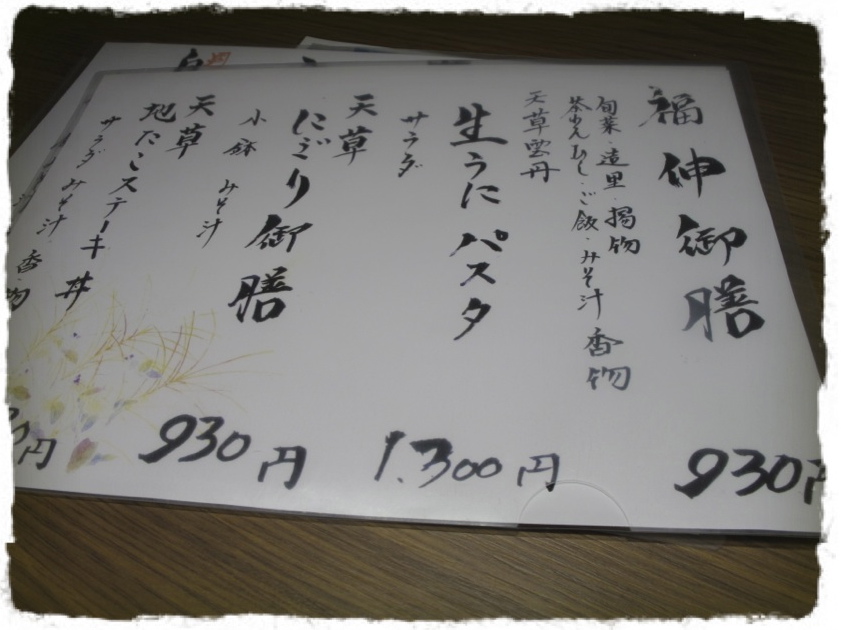 福伸御膳
旬菜・造里・揚物
茶わんむし・ご飯・みそ汁 香物
930円
天草雲丹
生うにパスタ
サラダ
1.300円
天草
にぎり御膳
小鉢 みそ汁
930円
天草
地たこステーキ丼
サラダ みそ汁 香物
0円